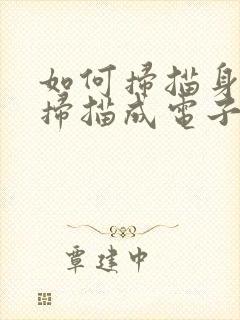 如何掃描身
掃描成電子
覃建中